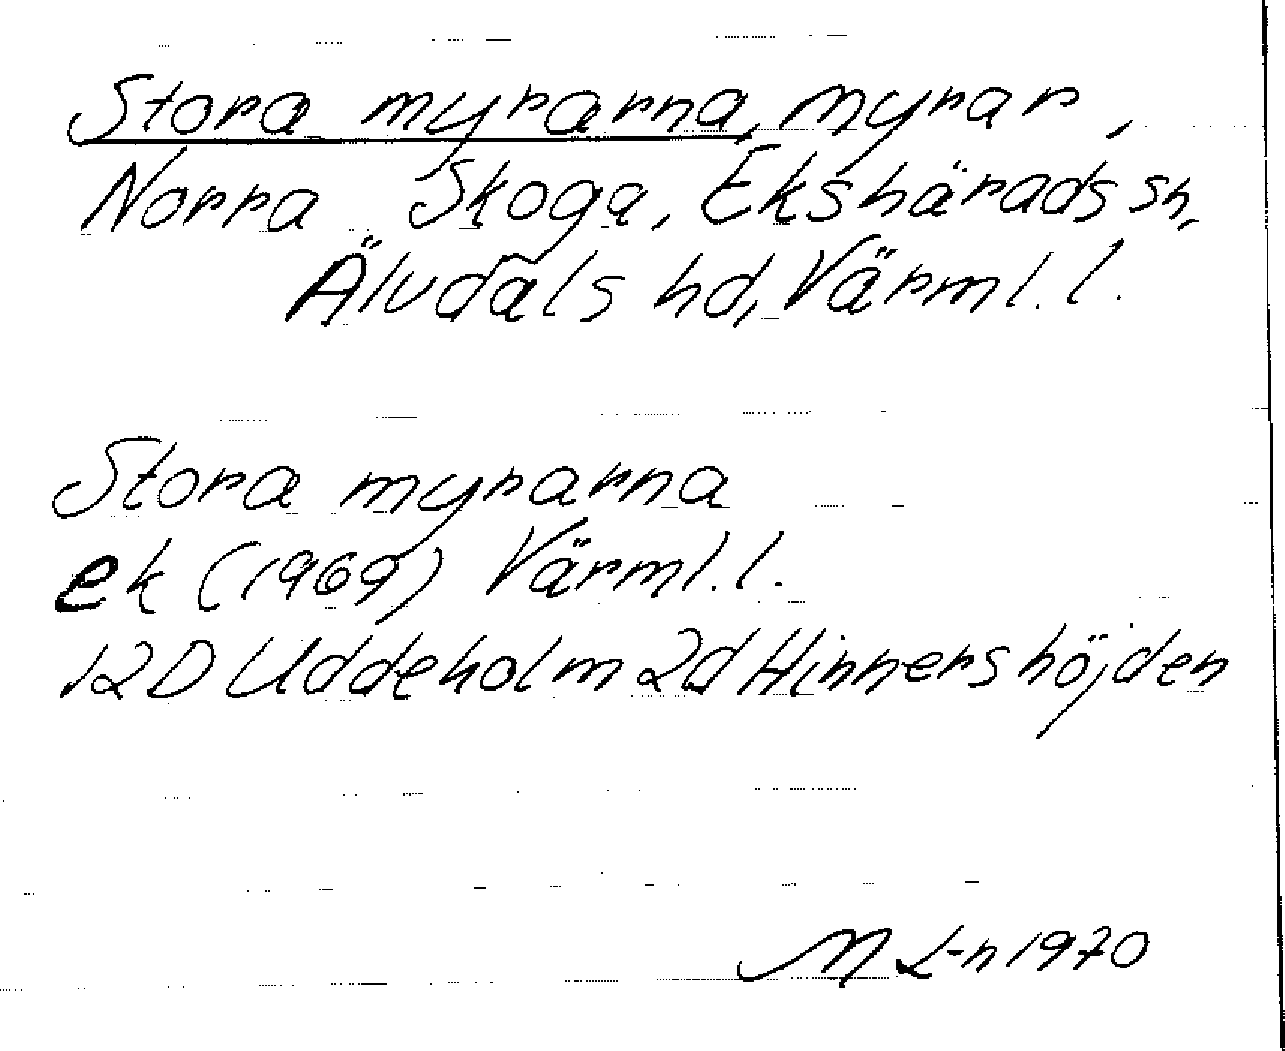 Stora myrarna, myrar,
Norra Skoga, Ekshärads sn,
Älvdals hd, Värml. l.
Stora myrarna
ek (1969) Värml. l.
12D Uddeholm 2d Hinnershöjden
M L-n 1970